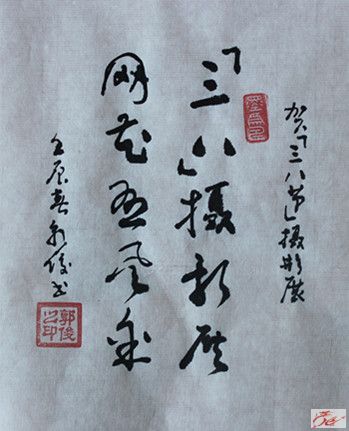 贺「三八节」摄影展
「三八」摄影展
网花风采
壬辰春郭俊书
郭俊之印